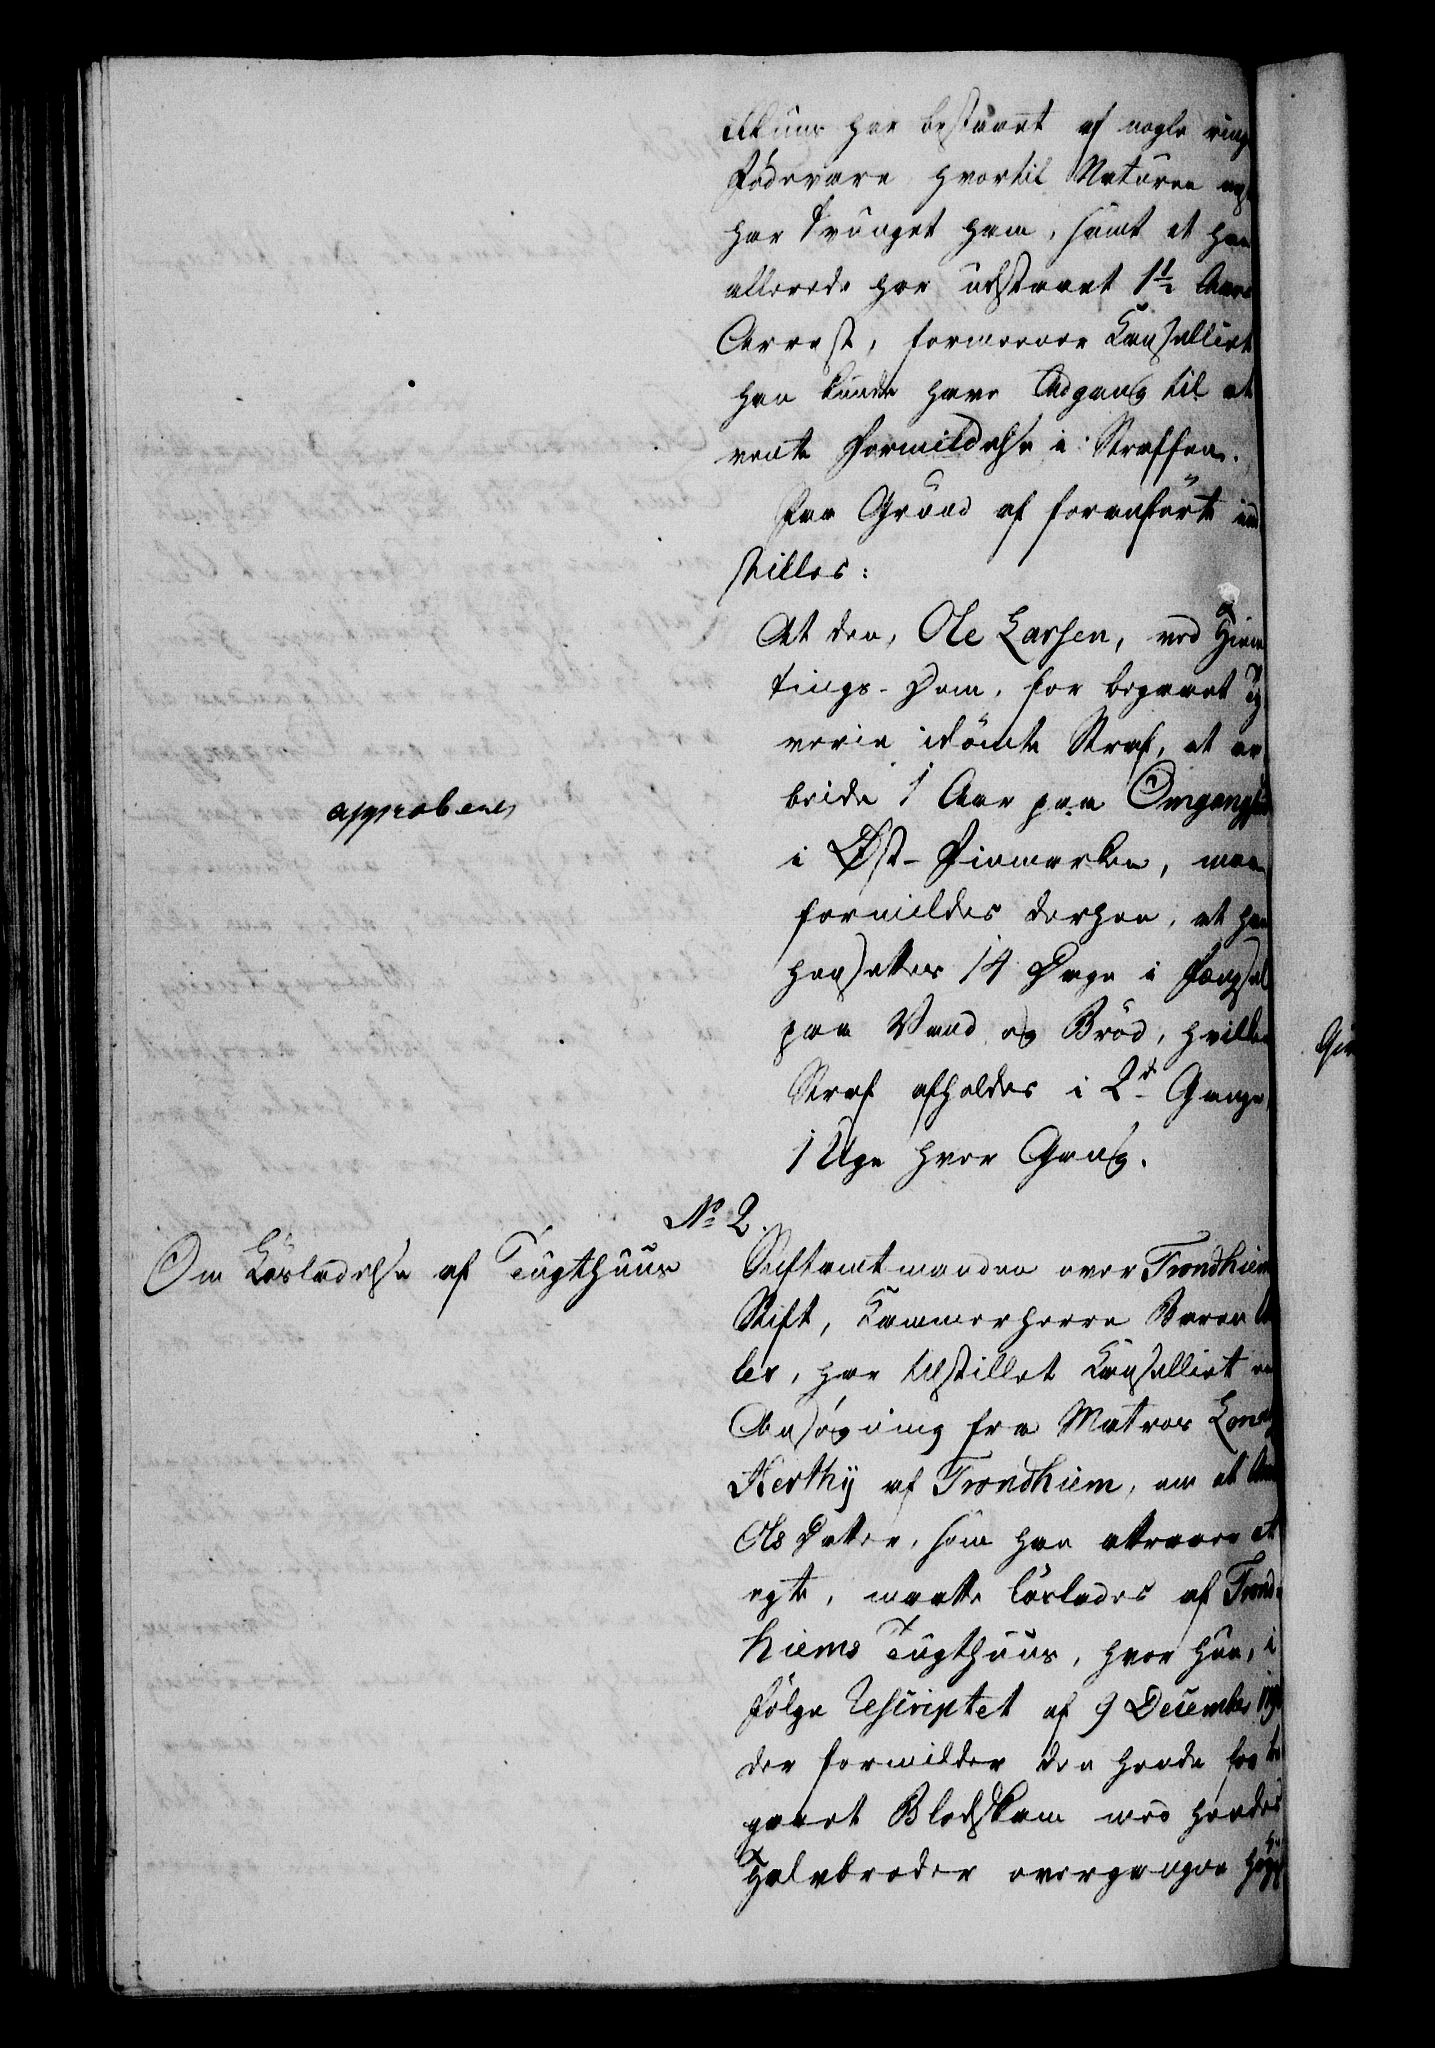 har bestaaet af nogle ringe
Födevare hvortil Naturen
har tvunget ham, samt at han
allerede har udstaaet 1½ Aars
Arrest, formeener Cancelliet
han kunde have Adgang til at
vente Formildelse i Straffen.
Paa Grund af foranförte ind
stilles:
At den, Ole Larsen, ved Hiem
tings-Dom, for begaaet Ty
verie idömte Straf, at ar
beide 1 Aar paa
i Øst-Finmarken, maa
formildes derhen, at han
hensættes 14 Dage i Fængsel
paa Vand og Bröd, hvilken
Straf afholdes i 2de Gange,
1 Uge hver Gang.
approberes
No 2.
Om Lösladelse af Tugthuus
Stiftamtmanden over Trondhiems
Stift, Kammerherre
har tilstillet Cancelliet en
Ansögning fra Matros
af Trondhiem, om at
Ols Datter, som han attraaer at
egte, maatte löslades af Trond-
hiems Tugthuus, hvor hun, i
fölge Rescriptet af 9 December
der formilder den hende for be
gaaet Blodskam med hendes
Halvbroder overgangne